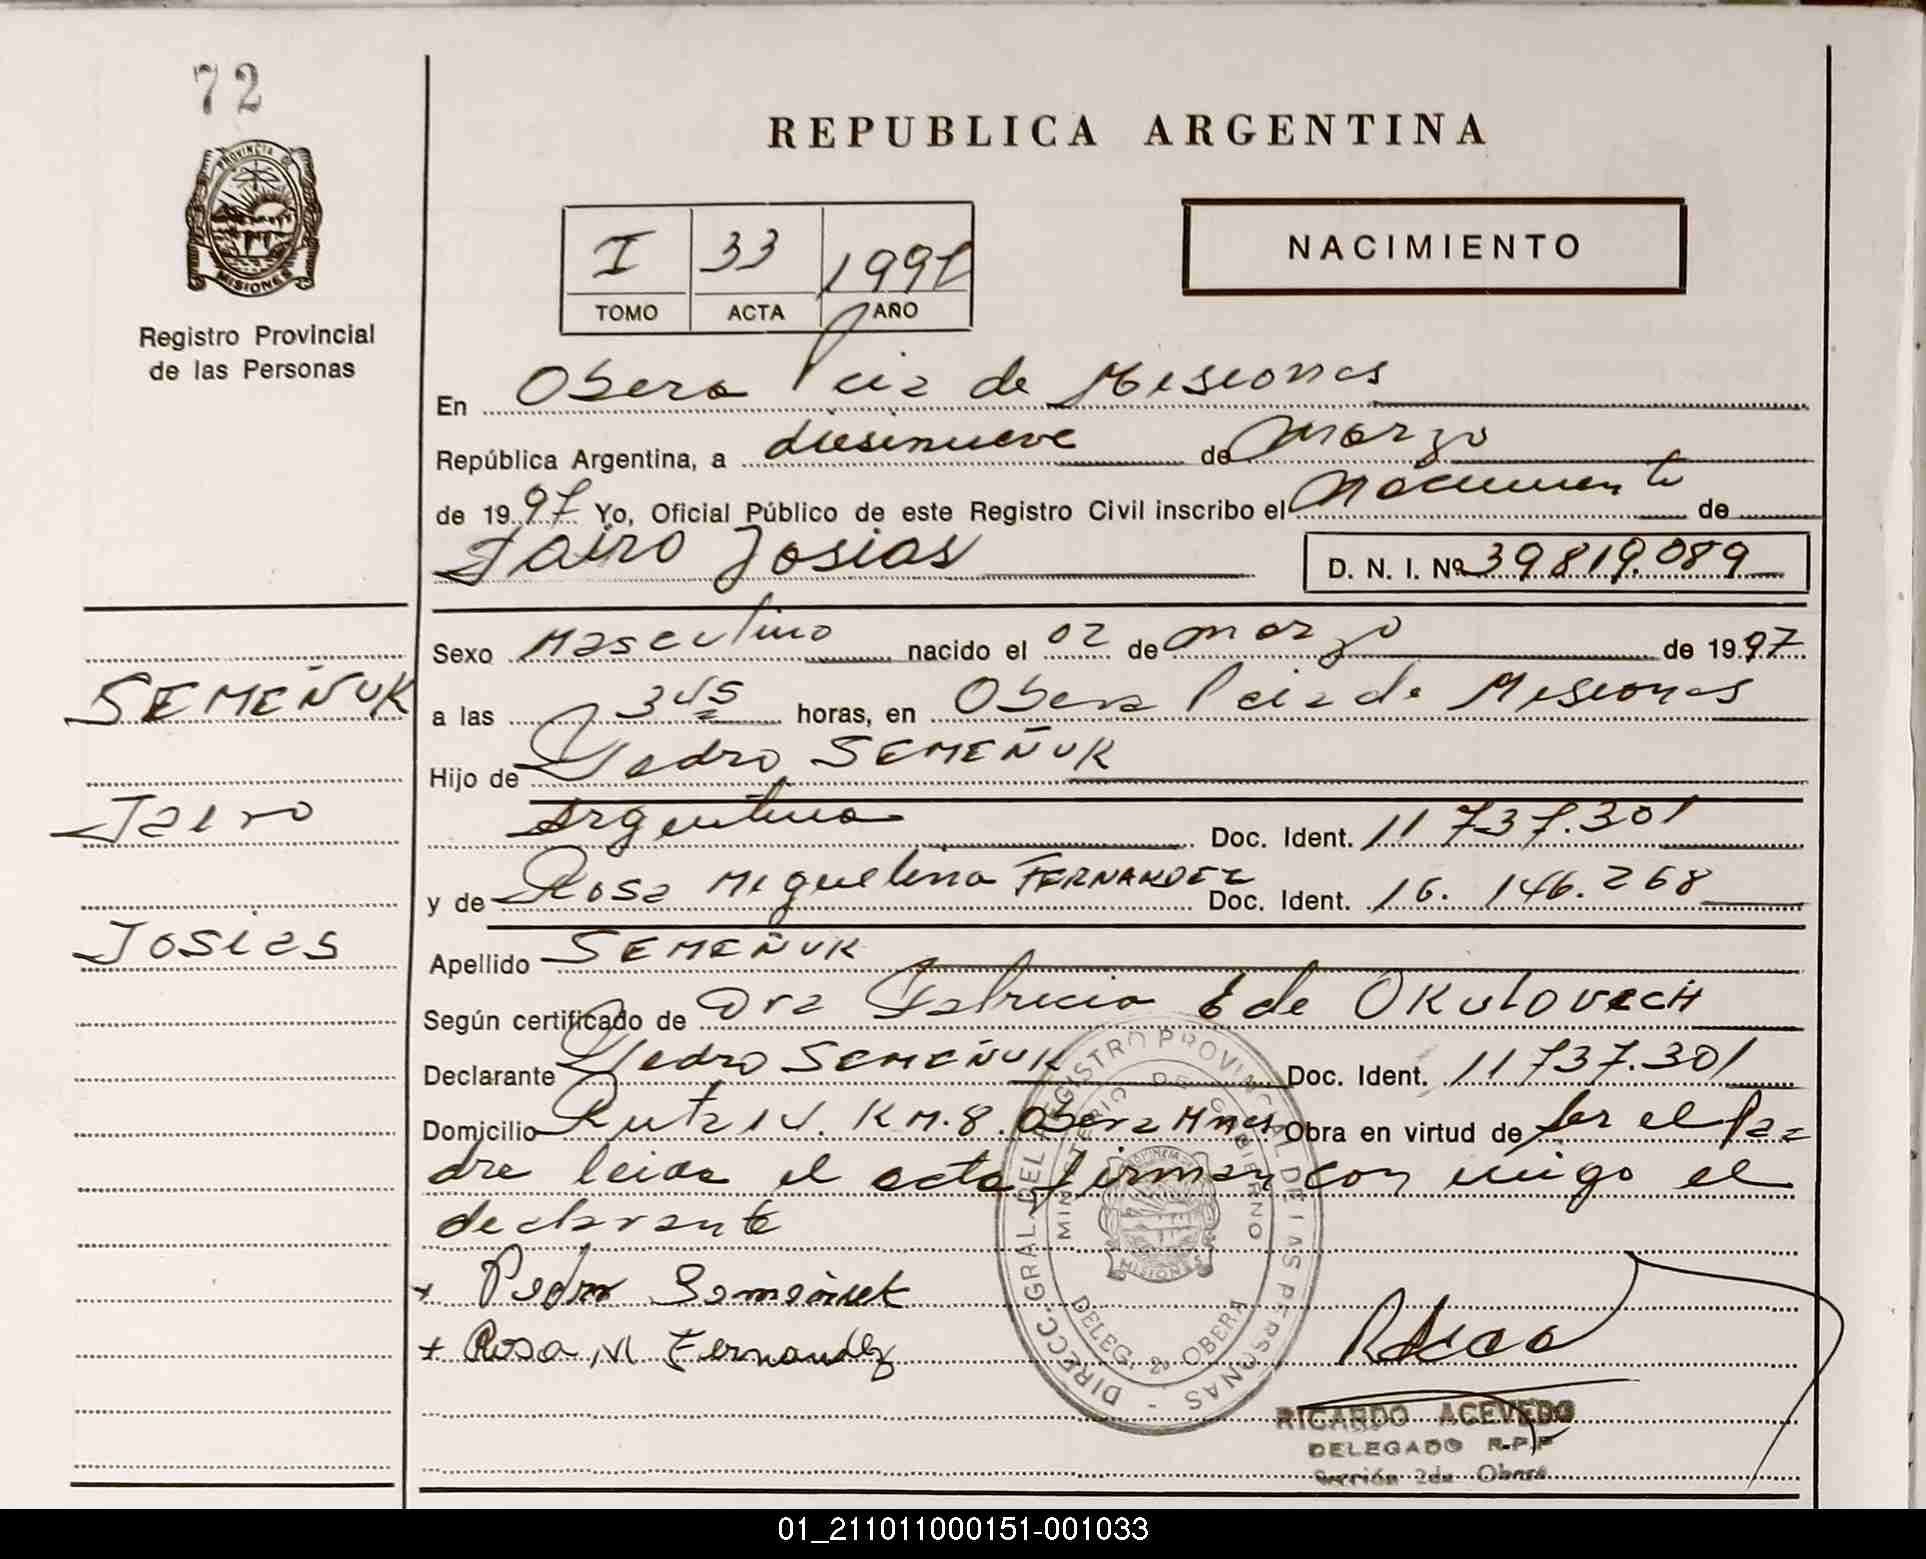 72
PROVINCIA DE
MISIONES
Registro Provincial
de las Personas
REPUBLICA ARGENTINA
I 33 1997
TOMO ACTA AÑO
NACIMIENTO
En Obera Pcia de Misiones
República Argentina, a diesinueve de Marzo
de 1997 Yo, Oficial Público de este Registro Civil inscribo el Nacimiento de
Jairo Josias D. N. I. Nº 39819.089
Sexo Masculino nacido el 02 de marzo de 1997
a las 3 45 horas, en Obera Pcia de Misiones
Hijo de Pedro SEMEÑUK
Argentino Doc. Ident. 11 737.301
y de Rosa Miguelina FERNANDEZ Doc. Ident. 16. 146. 268
Apellido SEMEÑUK
Según certificado de Dra Patricia E de OKULOVICH
Declarante Pedro SEMEÑUK Doc. Ident. 11 737.301
Domicilio Ruta 14. KM. 8. Obera Mnes Obra en virtud de ser el pa=
dre leida el acta firman con migo el
declarante
+ Pedro Semeñuk
+ Rosa M Fernandez
SEMEÑUK
Jairo
Josias
DIRECC. GRAL. DEL REGISTRO PROVINCIAL DE LAS PERSONAS -
MINISTERIO DE GOBIERNO
MISIONES
DELEG. 2ª OBERA
RICARDO ACEVEDO
DELEGADO R.P.P
Sección 2da Obera
01_211011000151-001033